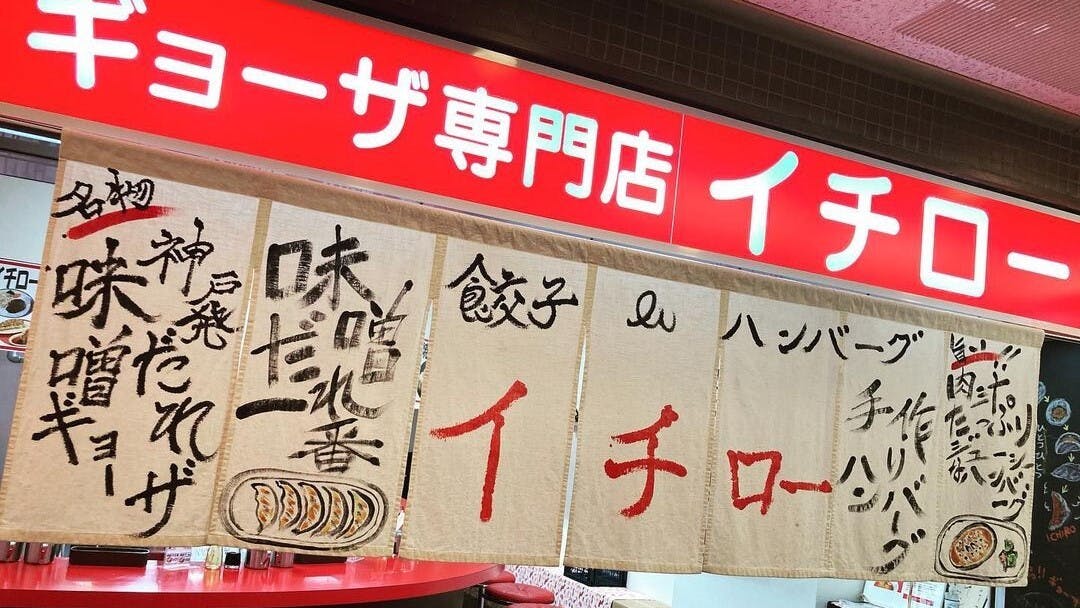 ギョーザ専門店 イチロー
名物
神戸発
味噌だれ
ギョーザ
味噌だれ一番
餃子
ハンバーグ
イチロー
手作り
ハンバーグ
旨ッ!!
肉汁たっぷり
ジューシー
ハンバーグ
イチロー
ICHIRO